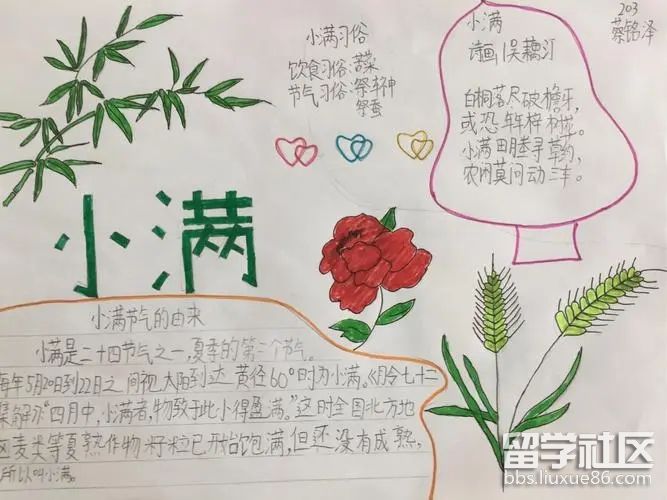 203
蔡铭泽
小满习俗
饮食习俗:苦菜
节气习俗:祭车神
祭蚕
小满
诗画|吴藕汀
白桐落尽破檐牙,
或恐年年梓树花。
小满田塍寻草药,
农闲莫问动三车。
小满
小满节气的由来
小满是二十四节气之一,夏季的第二个节气。
每年5月20日到22日之间视太阳到达黄径60°时为小满。《月令七十二
集解》:“四月中,小满者,物致于此小得盈满。”这时全国北方地
区麦类等夏熟作物籽粒已开始饱满,但还没有成熟,
所以叫小满。
留学社区
bbs.liuxue86.com